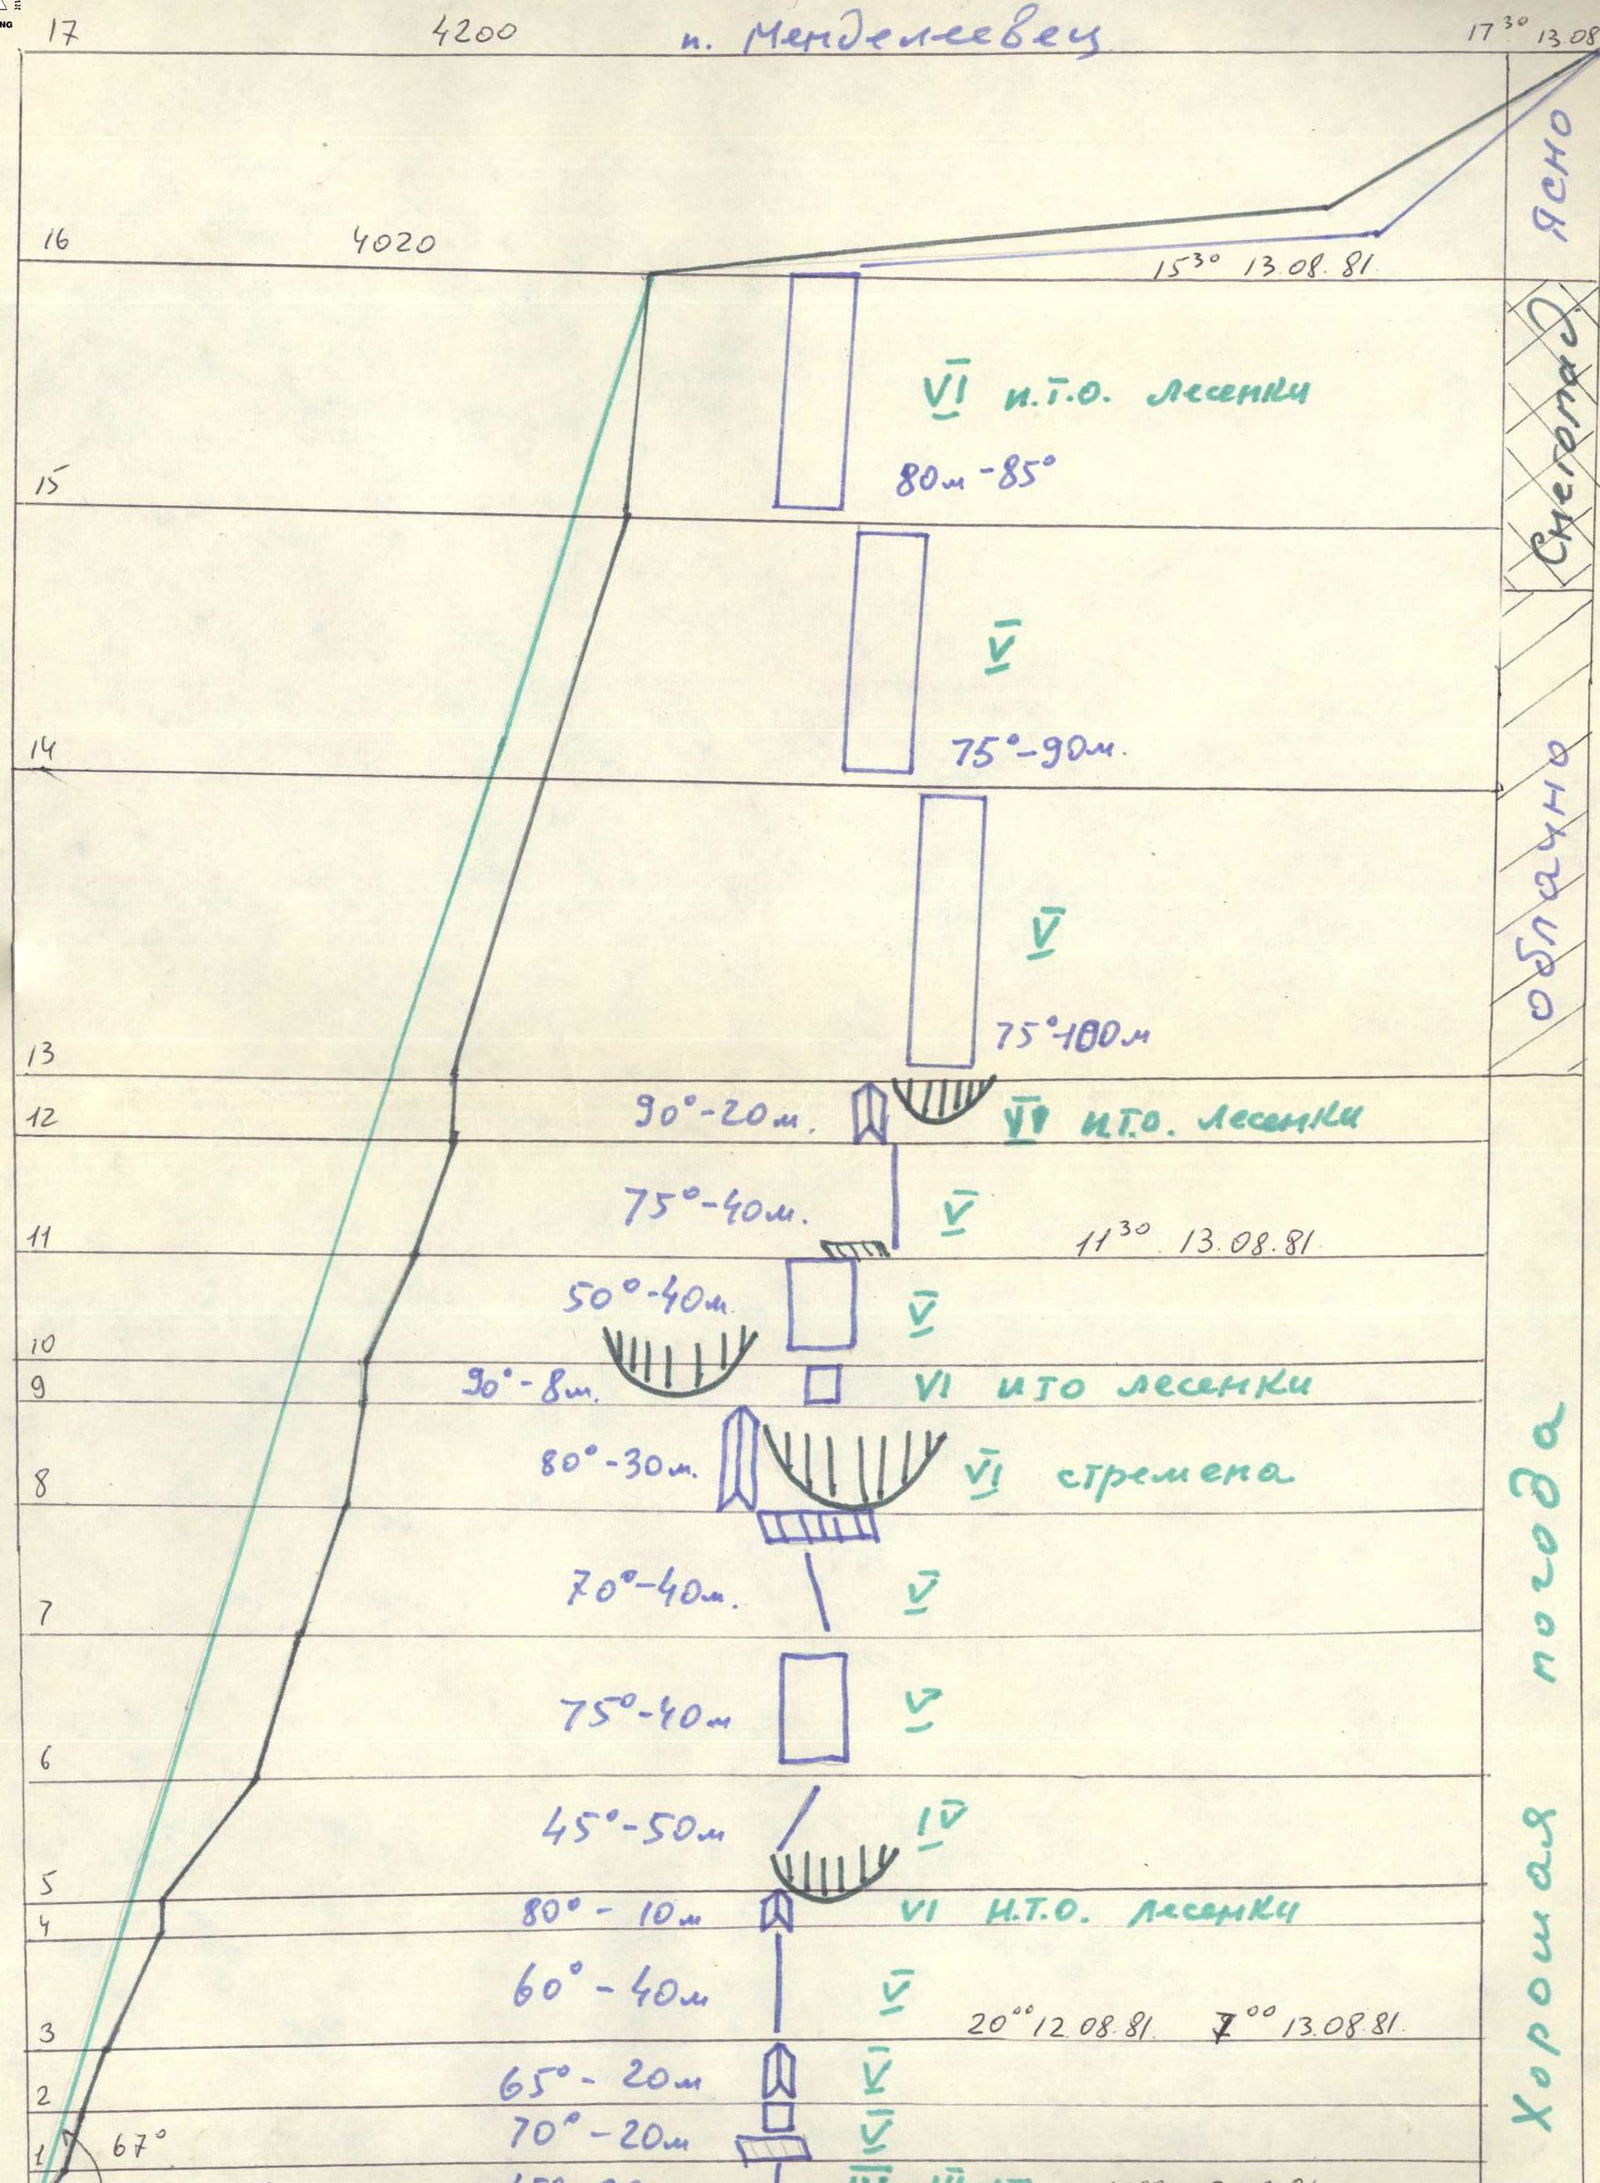 17 4200 п. Менделеевец 17³⁰ 13.08
Ясно
16 4020 15³⁰ 13.08.81.
VI и.т.о. лесенки
80м-85°
Снегопад
15
V
75°-90м.
14
облачно
V
75°-100м
13
90°-20м. VI и.т.о. лесенки
12
75°-40м. V
11 11³⁰ 13.08.81.
50°-40м. V
10
90°-8м. VI ИТО лесенки
9
80°-30м. VI стремена
8
70°-40м. V
7
75°-40м V
6
45°-50м IV
5
80°-10м VI И.Т.О. лесенки
4
60°-40м V
20⁰⁰ 12.08.81. 7⁰⁰ 13.08.81.
3
65°-20м V
2
70°-20м V
1 67°
Хорошая погода